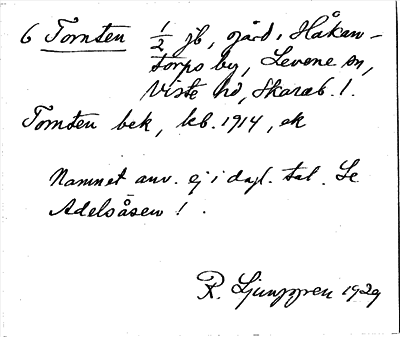 6 Tomten 1/2 jb, gård i Håkan-
torps by, Levene sn,
Viste hd, Skarab. l.
Tomten bek, kb. 1914, ek
Namnet anv. ej i dagl. tal. Se
Adelsåsen !
R. Ljunggren 1929